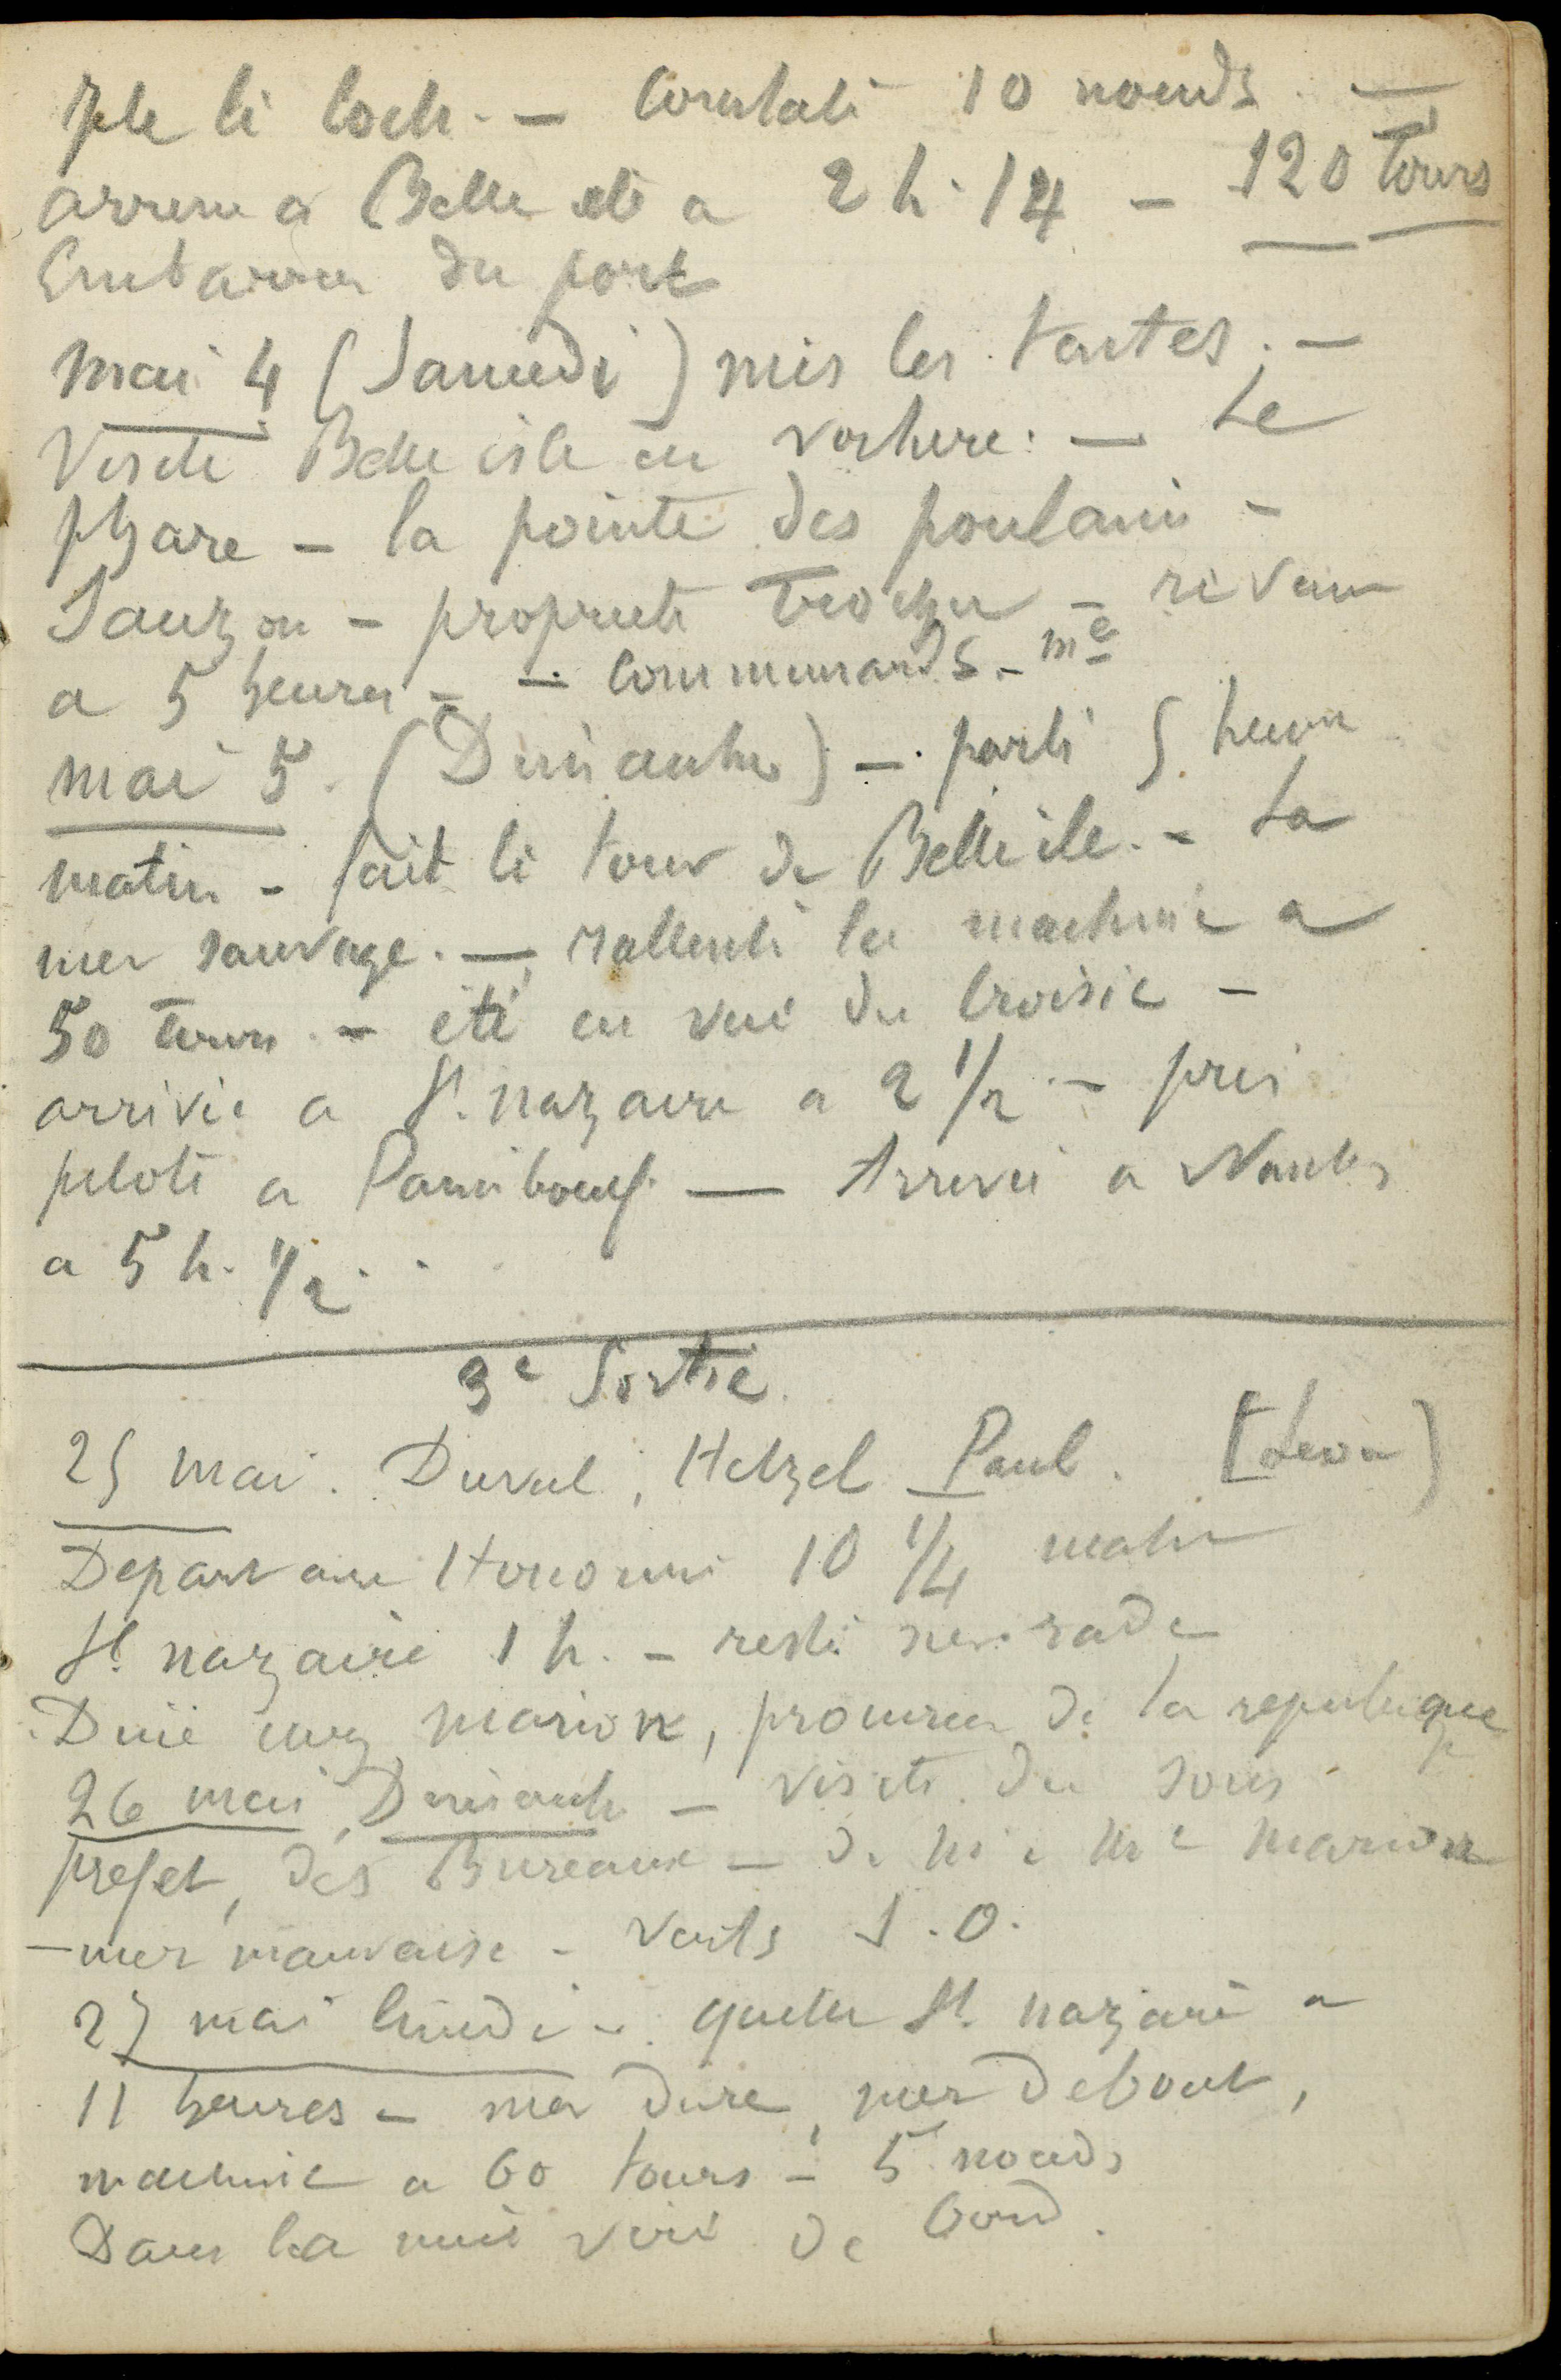 le loch. — Constaté 10 nœuds. —
arrivé a Belle ile a 2 h. 14 — 120 tours
Embarras du port
Mai 4 (Samedi) mis les tentes. —
Visite Belle isle en voiture. — Le
phare — la pointe des poulains —
Sauzon — propriété Trochu — revenu
a 5 heures — — Communards — me
Mai 5. (Dimanche) — parti 5 heures
matin — fait le tour de Belle ile. — La
mer sauvage. — rallenti la machine a
50 tours. — été en vue du Croisic —
arrivée a St. Nazaire a 2 1/2 — pris
pilote a Paimbœuf. — Arrivée a Nantes
a 5 h. 1/2.
3e Sortie.
25 mai. Duval, Hetzel Paul. [Léon)
Depart 10 1/4 matin
St. Nazaire 1 h. — resté sur rade
Diné chez Marion, procureur de la republique
26 mai, Dimanche — visite du sous
prefet, des Bureaux — de M. e Me Marion
— mer mauvaise — Vents S.O.
27 mai lundi — quitté St. Nazaire a
11 heures — mer dure, mer debout,
machine a 60 tours — 5 nœuds
Dans la nuit viré de bord.